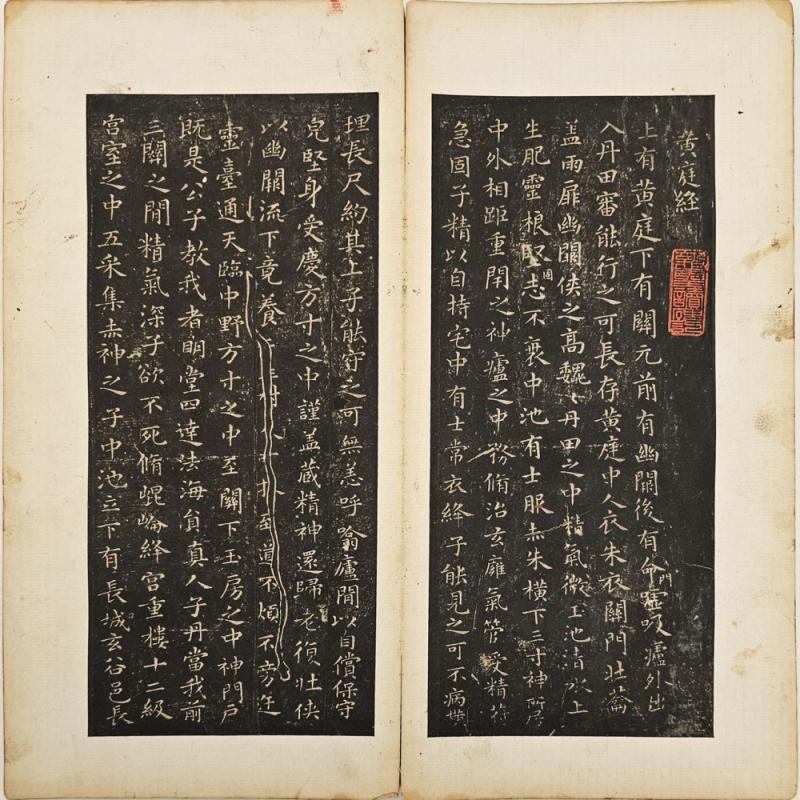 黄庭経
上有黄庭下有關元前有幽闕後有命門嘘吸廬外出
入丹田審能行之可長存黄庭中人衣朱衣關門壮籥
盖兩扉幽闕侠之高巍丹田之中精氣微玉池清水上
生肥靈根堅固志不衰中池有士服赤朱横下三寸神所居
中外相距重閇之神廬之中務脩治玄廱氣管受精符
急固子精以自持宅中有士常衣絳子能見之可不病
理長尺約其上子能守之可無恙呼噏廬間以自償保守
皃堅身受慶方寸之中謹盖藏精神還歸老復壮侠
以幽闕流下竟養至道不煩不旁迕
靈臺通天臨中野方寸之中至關下玉房之中神門戶
既是公子教我者明堂四達法海員真人子丹當我前
三關之間精氣深子欲不死脩崐崘絳宫重樓十二級
宫室之中五采集赤神之子中池立下有長城玄谷邑長